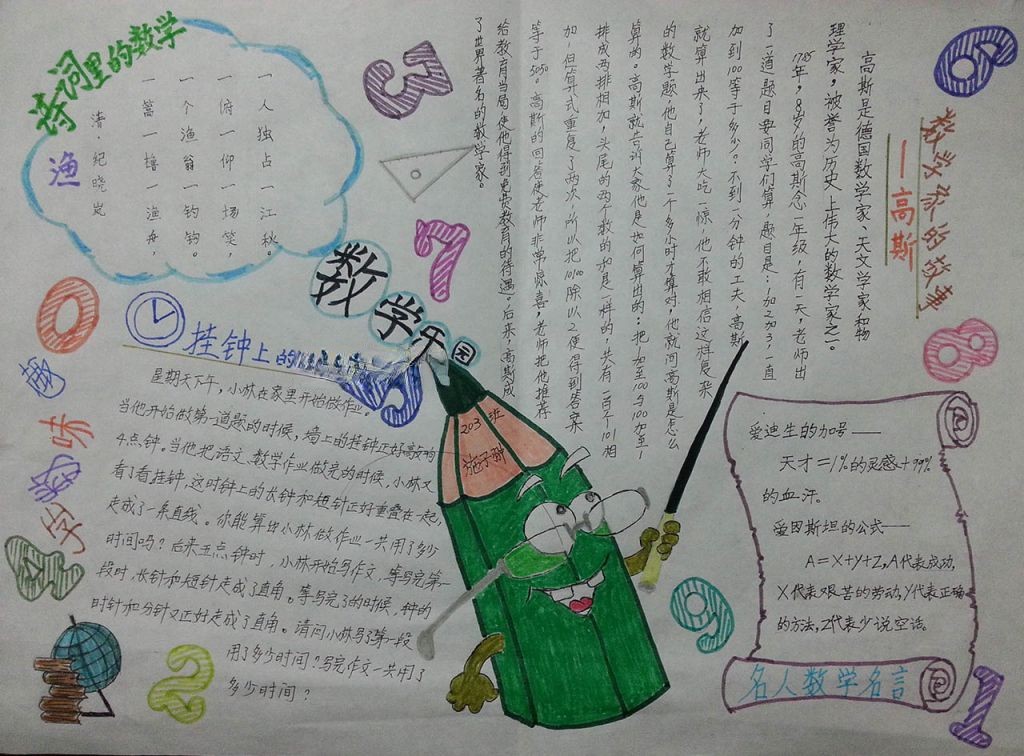 诗词里的数学
渔
清·纪晓岚
一篙一橹一渔舟，
一个渔翁一钓钩。
一俯一仰一场笑，
一人独占一江秋。
数学乐园
数学家的故事
——高斯
高斯是德国数学家、天文学家和物
理学家，被誉为历史上伟大的数学家之一。
1785年，8岁的高斯念一年级，有一天，老师出
了一道题目要同学们算，题目是：1加2加3，一直
加到100等于多少？不到一分钟的工夫，高斯
就算出来了，老师大吃一惊，他不敢相信这样复杂
的数学题，他自己算了一个多小时才算对，他就问高斯是怎么
算的。高斯就告诉大家他是如何算出的：把1加至100与100加至1
排成两排相加，头尾的两个数的和是一样的，共有一百个101相
加，但算式重复了两次，所以把10100除以2便得到答案
等于5050。高斯的回答使老师非常惊喜，老师把他推荐
给教育当局，使他得到免费教育的待遇。后来，高斯成
了世界著名的数学家。
挂钟上的
趣味数学
星期天下午，小林在家里开始做作业。
当他开始做第一道题的时候，墙上的挂钟正好敲响
4点钟。当他把语文、数学作业做完的时候，小林又
看了看挂钟，这时钟上的长钟和短针正好重叠在一起，
走成了一条直线。你能算出小林做作业一共用了多少
时间吗？后来五点钟时，小林开始写作文，等写完第一
段时，长针和短针走成了直角。等写完了的时候，钟的
时针和分针又正好走成了直角。请问小林写了第一段
用了多少时间？写完作文一共用了
多少时间？
203班
施子
爱迪生的加号——
天才=1%的灵感+99%
的血汗。
爱因斯坦的公式——
A=X+Y+Z,A代表成功，
X代表艰苦的劳动，Y代表正确
的方法，Z代表少说空话。
名人数学名言
0
1
2
3
4
6
7
8
9